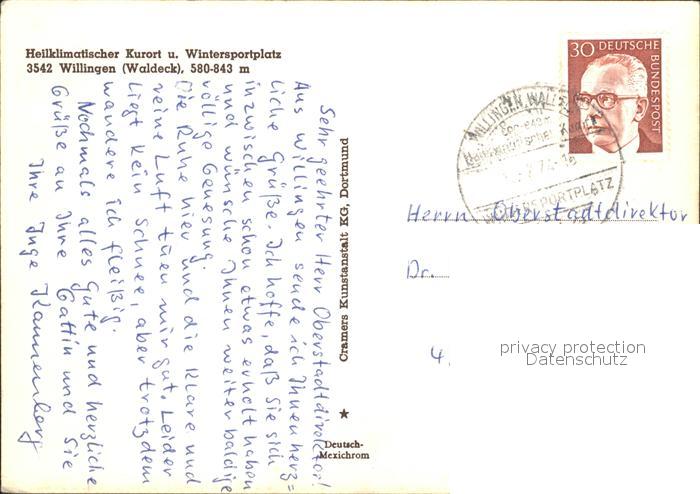 Heilklimatischer Kurort u. Wintersportplatz
3542 Willingen (Waldeck), 580-843 m
Sehr geehrter Herr Oberstadtdirektor!
Aus Willingen sende ich Ihnen herz=
liche Grüße. Ich hoffe, daß Sie sich
inzwischen schon etwas erholt haben
und wünsche Ihnen weiter baldige
völlige Genesung.
Die Ruhe hier und die klare und
reine Luft tuen mir gut. Leider
liegt kein Schnee, aber trotzdem
wandere ich fleißig.
Nochmals alles Gute und herzliche
Grüße an Ihre Gattin und Sie
Ihre Inge Kannenberg
Cramers Kunstanstalt KG, Dortmund
★
Deutsch-
Mexichrom
30 DEUTSCHE
BUNDESPOST
WILLINGEN, WALDECK
WINTERSPORTPLATZ
Herrn Oberstadtdirektor
Dr.
4.
privacy protection
Datenschutz